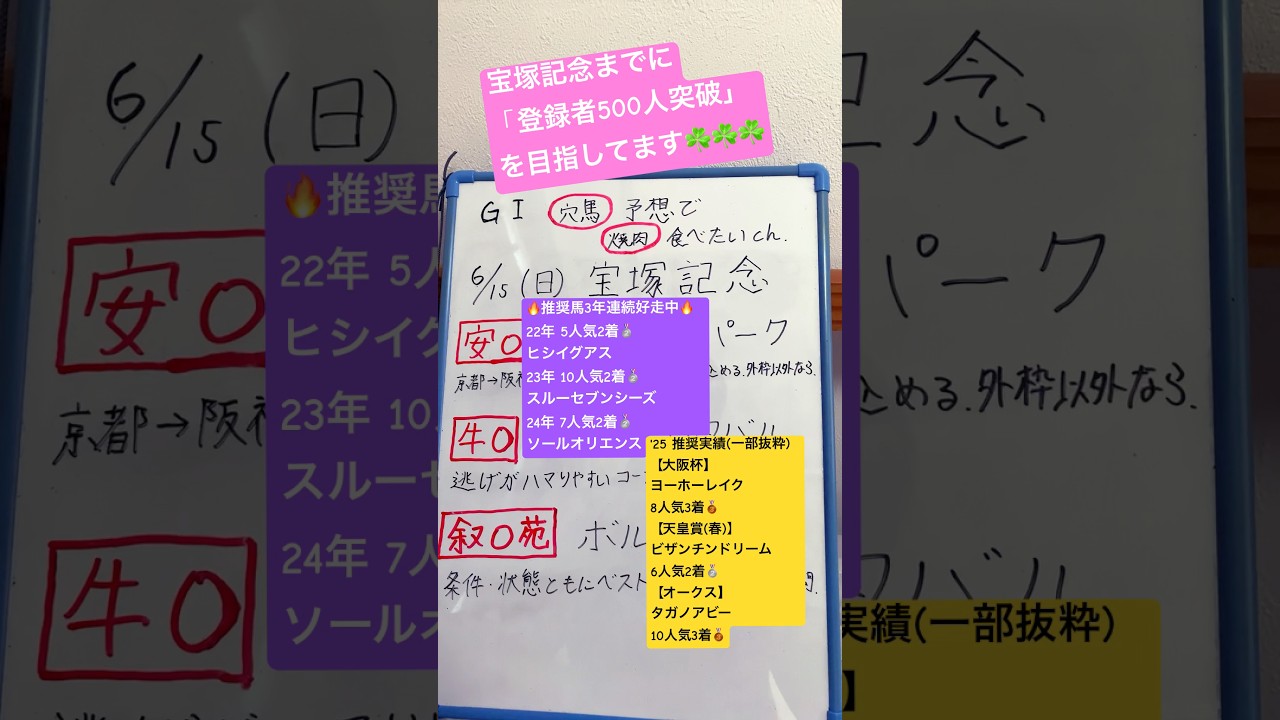 宝塚記念までに
「登録者500人突破」
を目指してます☘️☘️☘️
GⅠ 穴馬 予想で
焼肉 食べたいch.
6/15(日) 宝塚記念
🔥推奨馬3年連続好走中🔥
22年 5人気2着🥈
ヒシイグアス
23年 10人気2着🥈
スルーセブンシーズ
24年 7人気2着🥈
ソールオリエンス
安〇 パーク
京都→阪神 込める.外枠以外なら.
牛〇 バル
逃げがハマりやすいコー
叙〇苑 ボル
条件・状態ともにベスト
'25 推奨実績(一部抜粋)
【大阪杯】
ヨーホーレイク
8人気3着🥉
【天皇賞(春)】
ビザンチンドリーム
6人気2着🥈
【オークス】
タガノアビー
10人気3着🥉